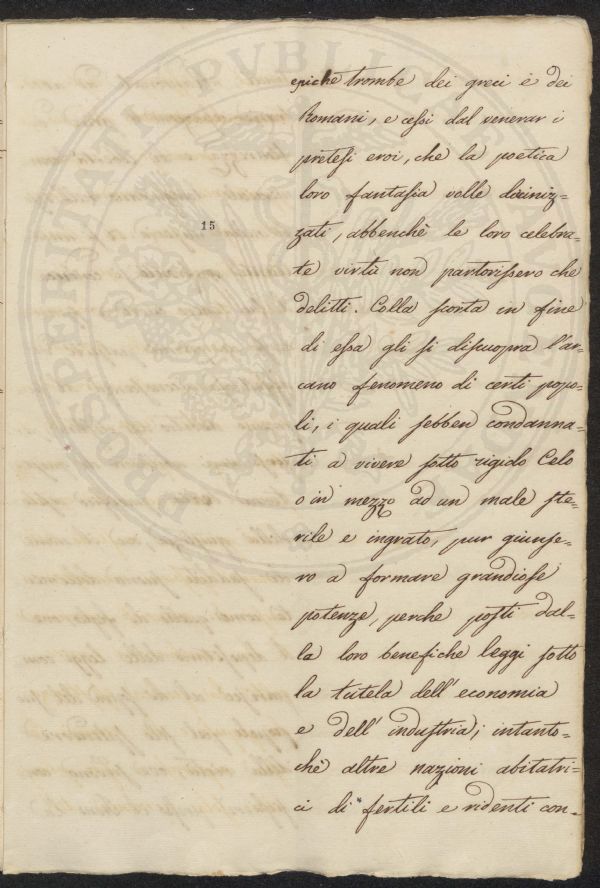 epiche trombe dei greci e dei
Romani, e cessi dal venerar i
pretesi eroi, che la poetica
loro fantasia volle diviniz-
zati, abbenchè le loro celebra-
te virtù non partorissero che
delitti. Colla scorta in fine
di essa gli si discuopra l'ar-
cano fenomeno di certi popo-
li, i quali sebben condanna-
ti a vivere sotto rigido Celo
o in mezzo ad un male ste-
rile e ingrato, pur giunse-
ro a formare grandiose
potenze, perche posti dal-
la loro benefiche leggi sotto
la tutela dell'economia
e dell'industria; intanto-
chè altre nazioni abitatri-
ci di fertili e ridenti con-
15
PROSPERITATI PVBLICAE